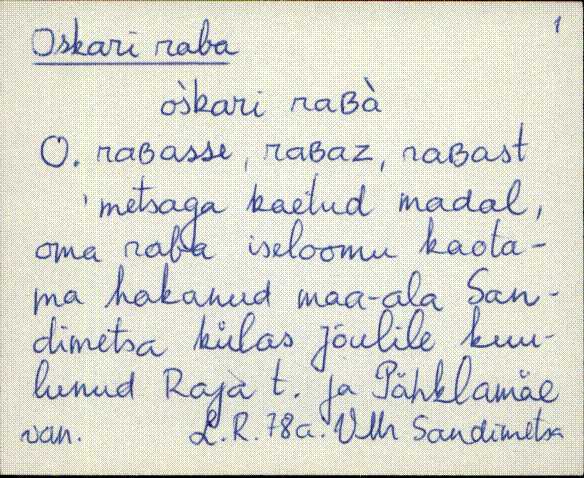 1
Oskari raba
òskari raʙà
O. raʙasse, raʙaz, raʙast
'metsaga kaetud madal,
oma raba iseloomu kaota-
ma hakanud maa-ala San-
dimetsa külas Jõulile kuu-
lunud Raja t. ja Pähklamäe
van. L.R. 78a. Vllr Sandimetsa